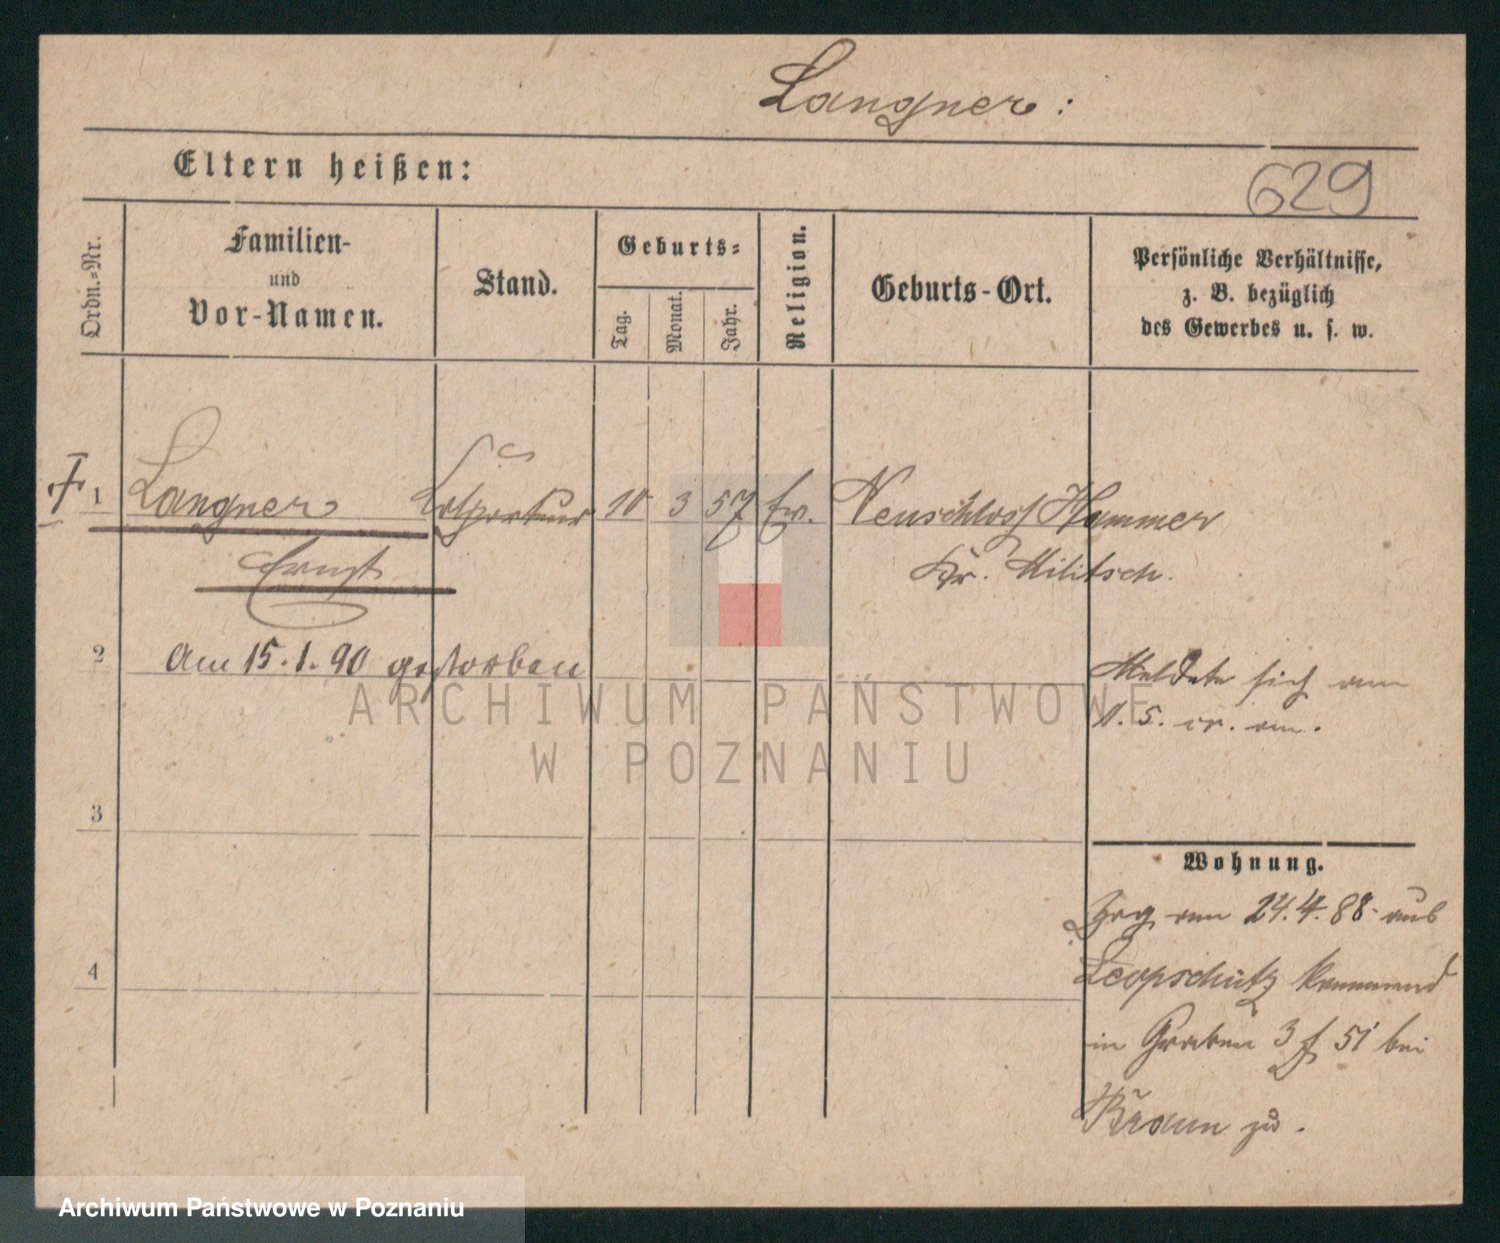 Langner:
Eltern heißen:
629
Ordn.-Nr.
Familien-
und
Vor-Namen.
Stand.
Geburts-
Tag.
Monat.
Jahr.
Religion.
Geburts-Ort.
Persönliche Verhältnisse,
z. B. bezüglich
des Gewerbes u. s. w.
1 Langner 10 3 57 Ev. Neuschloss Hammer
Ernst Kr. Militsch.
2 Am 15.1.90 gestorben
Meldete sich am
1. 5. cr. an.
ARCHIWUM PAŃSTWOWE
W POZNANIU
3
Wohnung.
Zog am 24.4.88 aus
4 Leopschütz kommend
in Graben 3 f 51 bei
Braun zu.
Archiwum Państwowe w Poznaniu